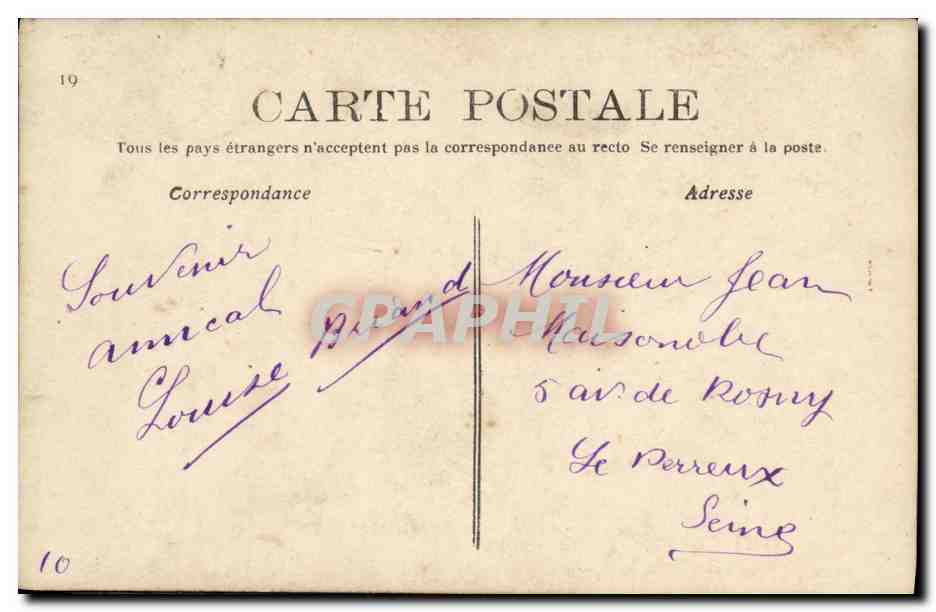 19
CARTE POSTALE
Tous les pays étrangers n'acceptent pas la correspondance au recto Se renseigner à la poste.
Correspondance
Souvenir
amical
Louise Durand
Adresse
Monsieur Jean
5 av. de Rosny
Le Perreux
Seine
10
CPAPHIL